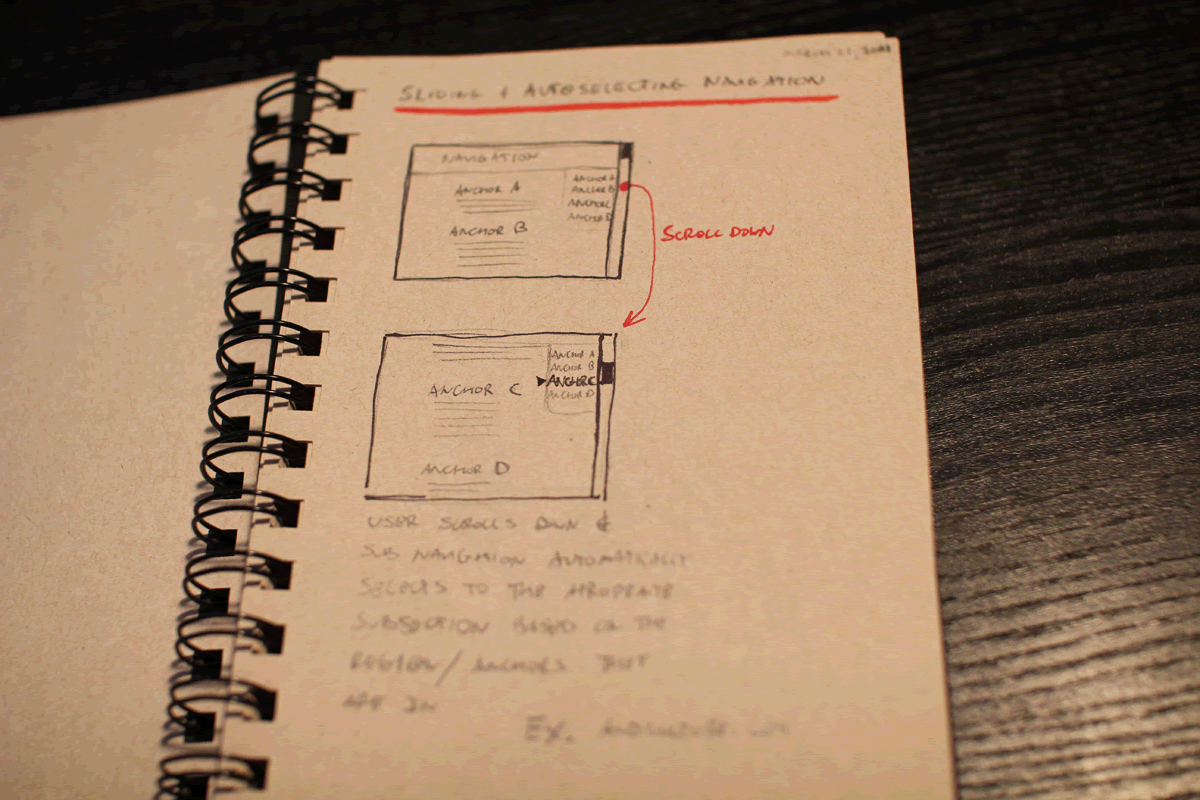 SLIDING & AUTOSELECTING NAVIGATION
NAVIGATION
ANCHOR A
ANCHOR B
ANCHOR A
ANCHOR B
ANCHOR C
ANCHOR D
SCROLL DOWN
ANCHOR C
ANCHOR D
ANCHOR A
ANCHOR B
ANCHOR C
ANCHOR D
USER SCROLLS DOWN &
SUB NAVIGATION AUTOMATICALLY
SELECTS TO THE
SUBSECTION BASED ON THE
REGION/ANCHORS THAT
ARE IN
Ex.